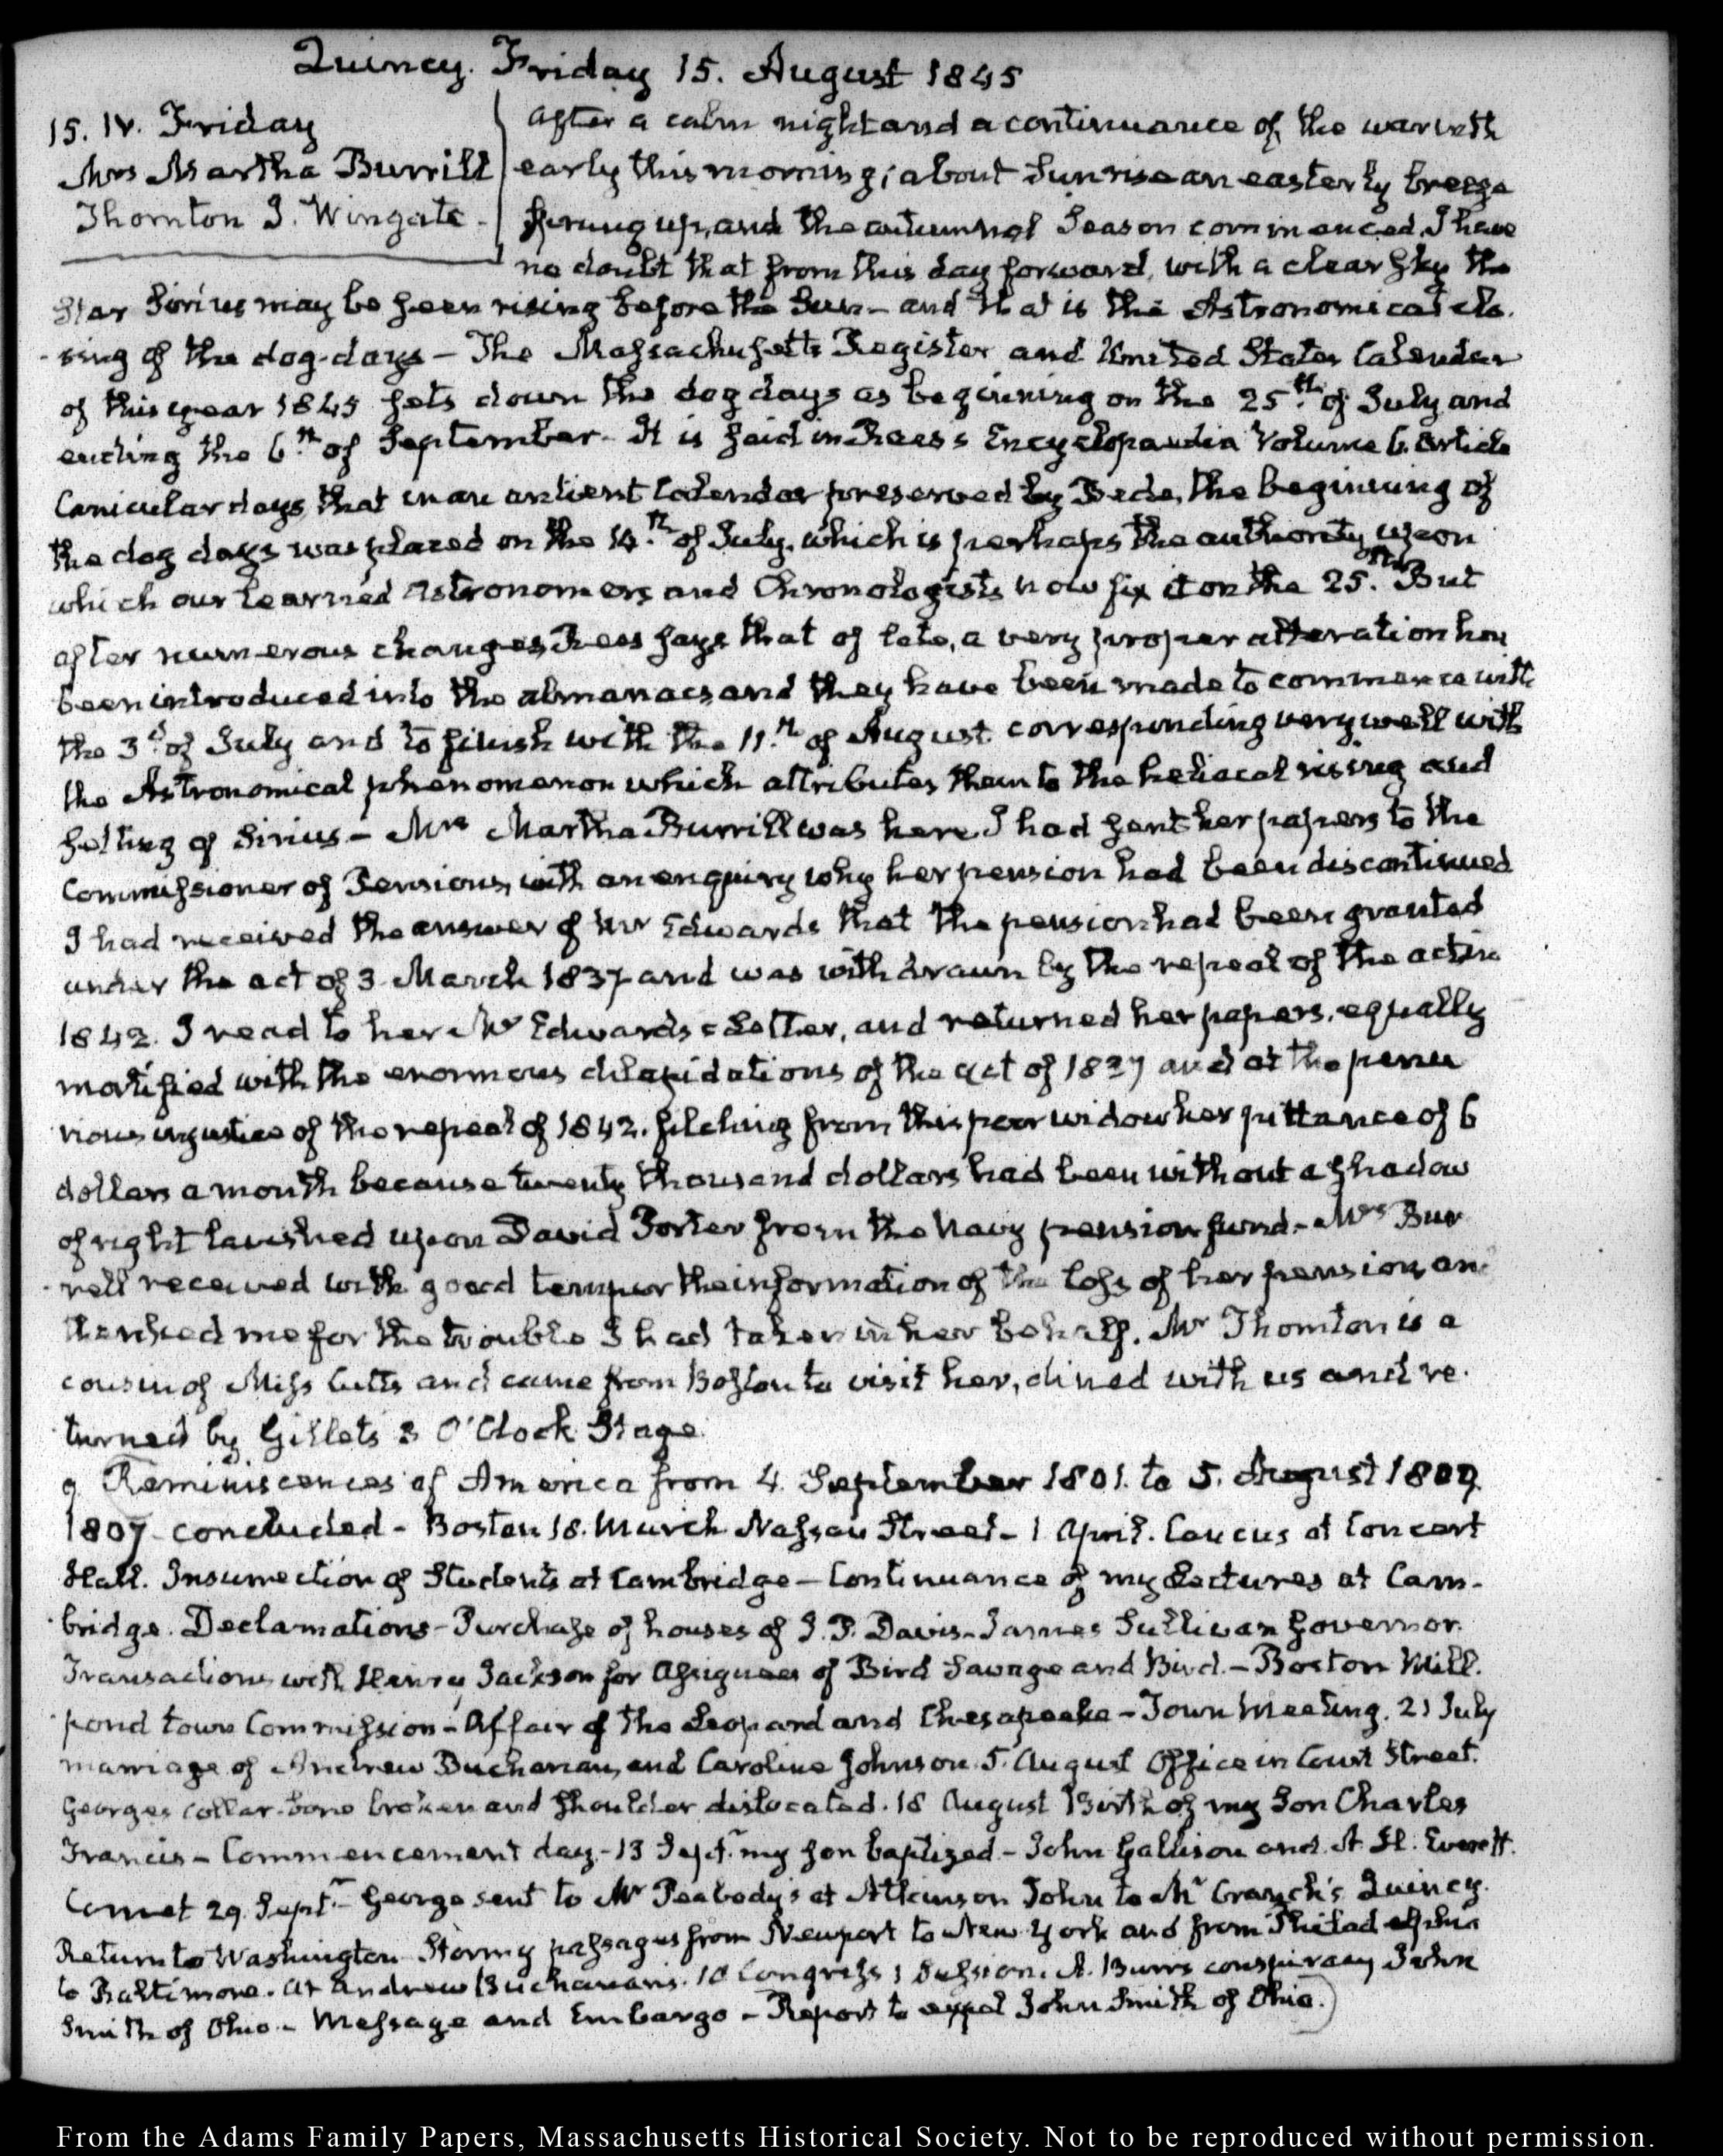 Quincy. Friday 15. August 1845
15. IV. Friday
Mrs Martha Burrill
Thornton J. Wingate.
After a calm night and a continuance of the warmth
early this morning; about Sunrise an easterly breeze
sprung up, and the autumnal Season commenced. I have
no doubt that from this day forward, with a clear sky the
Star Sirius may be seen rising before the Sun — and that is the Astronomical clo-
sing of the dog-days — The Massachusetts Register and United States Calendar
of this year 1845 sets down the dog days as beginning on the 25th of July and
ending the 6th of September. It is said in Rees's Encyclopaedia Volume 6. Article
Canicular days, that in an antient Calendar preserved by Bede, the beginning of
the dog days was placed on the 14th of July, which is perhaps the authority upon
which our learned Astronomers and Chronologists now fix it on the 25th But
after numerous changes Rees says that of late, a very proper alteration has
been introduced into the almanacs and they have been made to commence with
the 3d of July and to finish with the 11th of August corresponding very well with
the Astronomical phenomenon which attributes them to the heliacal rising and
setting of Sirius — Mrs Martha Burrill was here. I had sent her papers to the
Commissioner of Pensions, with an enquiry why her pension had been discontinued
I had received the answer of Mr Edwards that the pension had been granted
under the act of 3 March 1837 and was withdrawn by the repeal of the act in
1842. I read to her Mr Edwards's Letter, and returned her papers, equally
mortified with the enormous dilapidations of the act of 1837 and at the penu
rious injustice of the repeal of 1842. filching from this poor widow her pittance of 6
dollars a month because twenty thousand dollars had been without a shadow
of right lavished upon David Porter from the Navy pension fund. — Mrs Bur
-rell received with good temper the information of the loss of her pension, and
thanked me for the trouble I had taken in her behalf. Mr Thornton is a
cousin of Miss Cutts and came from Boston to visit her, dined with us and re-
turned by Gillets 3 O'Clock Stage.
9 Reminiscences of America from 4. September 1801. to 5. August 1809.
1807 concluded — Boston 18. March Nassau Street — 1 April. Caucus at Concert
Hall. Insurrection of Students at Cambridge — Continuance of my Lectures at Cam-
bridge. Declamations — Purchase of houses of J. P. Davis — James Sullivan Governor.
Transactions with Henry Jackson for Assignees of Bird Savage and Bird. — Boston Mill.
pond town Commission — Affair of the Leopard and Chesapeake — Town Meeting. 21 July
marriage of Andrew Buchanan, and Caroline Johnson. 5. August Office in Court Street.
Georges collar-bone broken and shoulder dislocated. 18 August Birth of my Son Charles
Francis — Commencement day. — 13 Septr my son baptized — John Gallison and A. H. Everett.
Comet 29. Septr — George sent to Mr Peabody's at Atkinson John to Mr Cranch's Quincy.
Return to Washington Stormy passages from Newport to New York and from Philadelphia
to Baltimore. At Andrew Buchanans. 10 Congress 1 Session. A. Burrs conspiracy John
Smith of Ohio. — Message and Embargo — Report to expel John Smith of Ohio.)
From the Adams Family Papers, Massachusetts Historical Society. Not to be reproduced without permission.